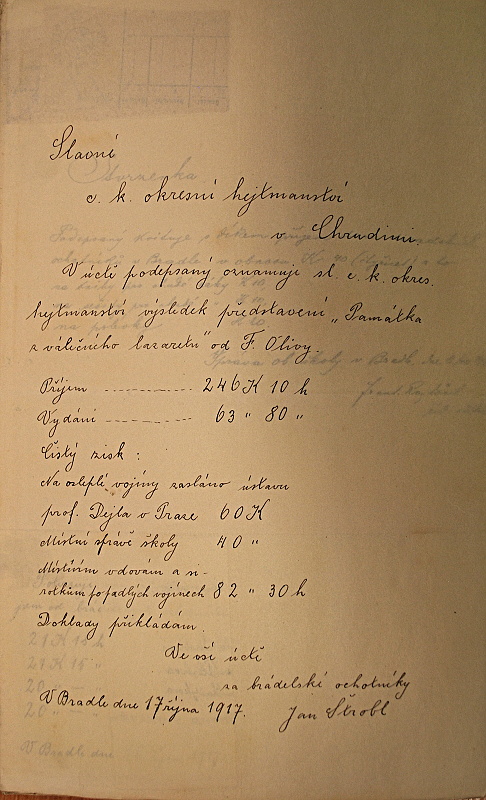 Slavné
c. k. okresní hejtmanství
v Chrudimi
V úctě podepsaný oznamuje sl. c. k. okres.
hejtmanství výsledek představení „Památka
z válečného lazaretu" od F. Olivy.
Příjem ---------- 246 K 10 h
Vydání ---------- 63 " 80 "
Čistý zisk :
Na osleplé vojíny zasláno ústavu
prof. Dejla v Praze 60 K
Místní správě školy 40 "
Místním vdovám a si-
rotkům po padlých vojínech 82 " 30 h
Doklady přikládám.
Ve vší úctě
za brádelské ochotníky
V Bradle dne 17 října 1917. Jan Štrobl